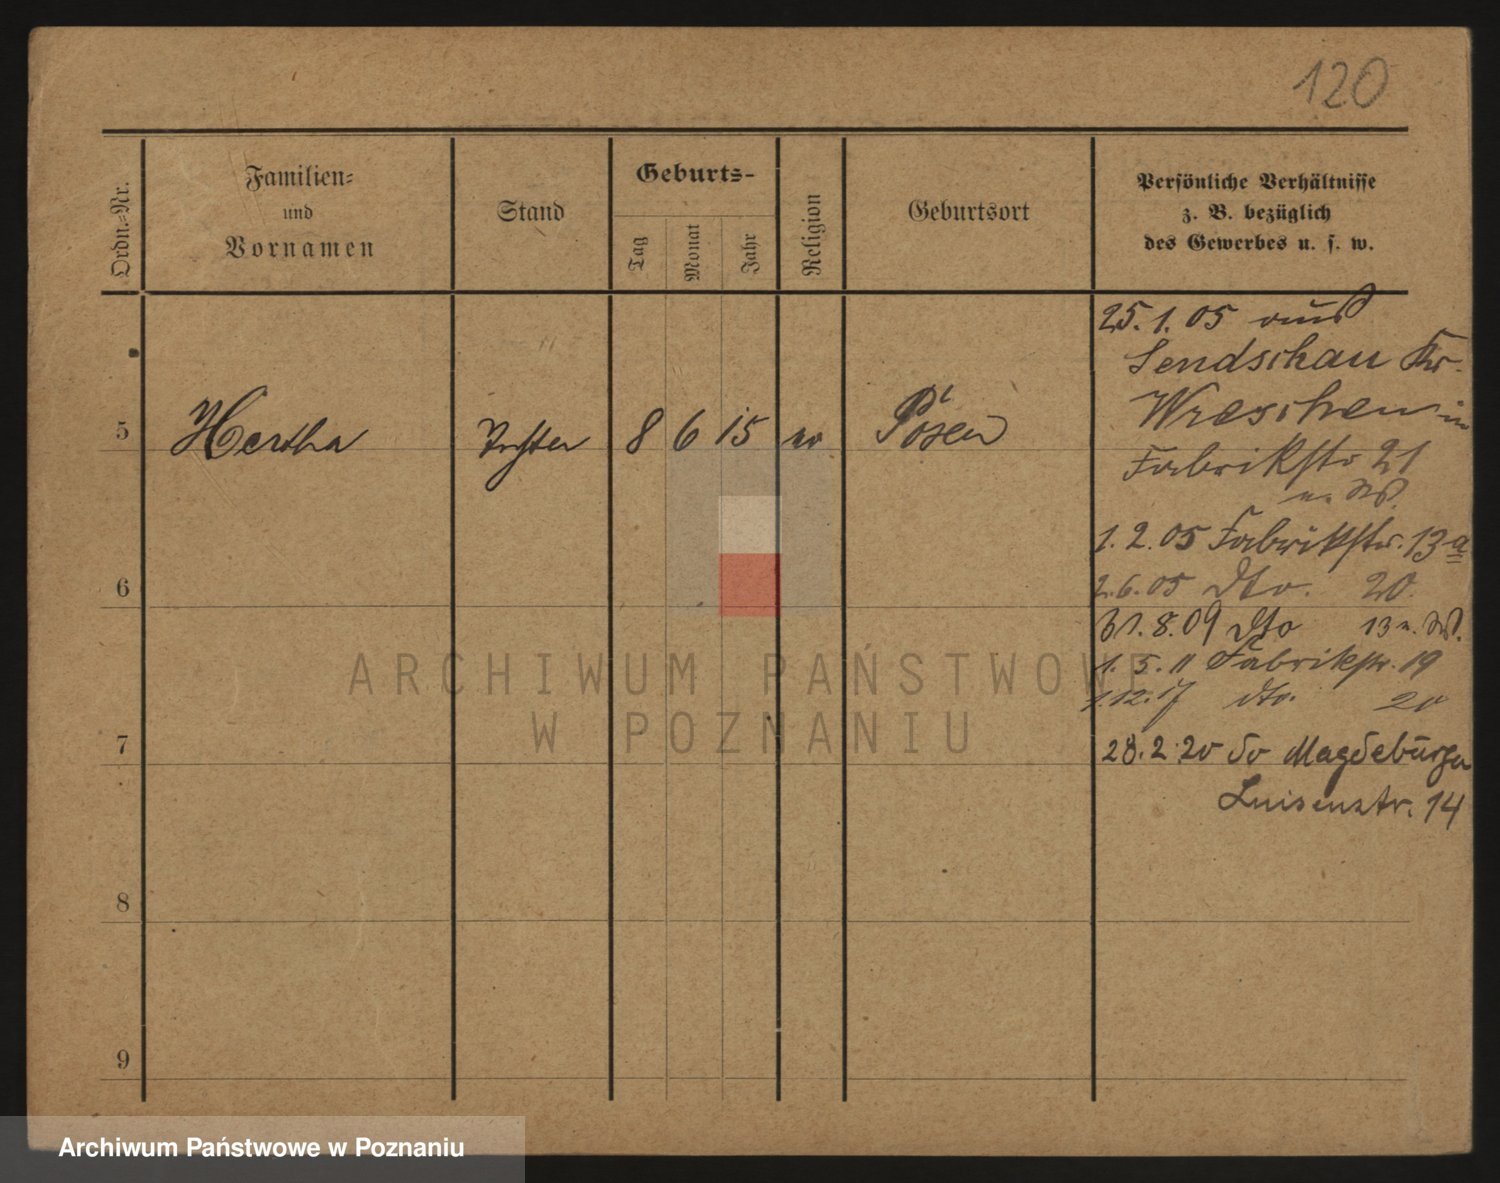 120
Ordn.-Nr.
Familien-
und
Vornamen
Stand
Geburts-
Tag
Monat
Jahr
Religion
Geburtsort
Persönliche Verhältnisse
z. B. bezüglich
des Gewerbes u. s. w.
5
Hertha
Tochter
8
6
15
Posen
25. 1. 05 aus
Sendschau Kr.
Wreschen in
Fabrikstr 21
1. 2. 05 Fabrikstr. 13a
2. 6. 05 dto. 20.
31. 8. 09 dto 13
1. 5. 11 Fabrikstr. 19
1. 12. 17 dto. 20
28. 2. 20 Magdeburg
Luisenstr. 14
6
7
8
9
ARCHIWUM PAŃSTWOWE
W POZNANIU
Archiwum Państwowe w Poznaniu